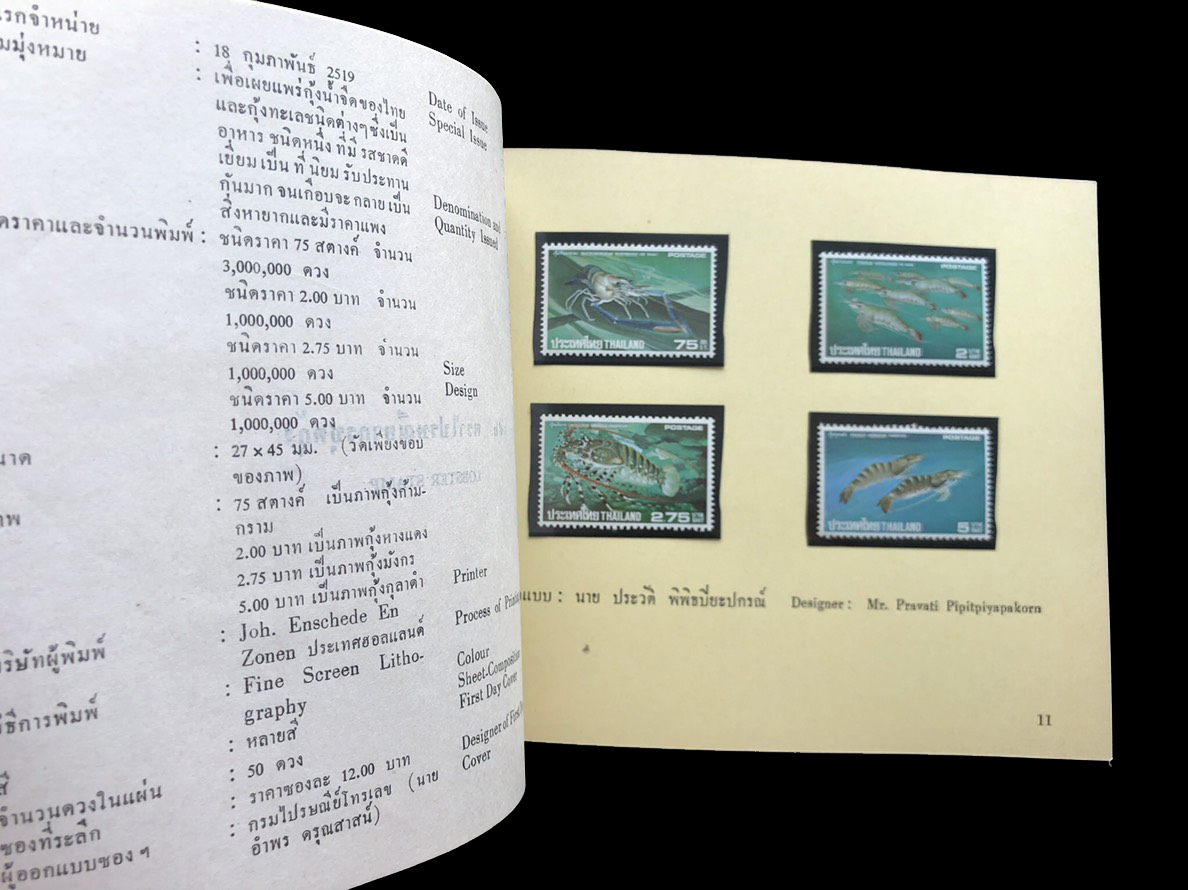 แรกจำหน่าย : 18 กุมภาพันธ์ 2519
มมุ่งหมาย : เพื่อเผยแพร่กุ้งน้ำจืดของไทย
และกุ้งทะเลชนิดต่างๆซึ่งเป็น
อาหาร ชนิดหนึ่ง ที่มี รสชาดดี
เยี่ยม เป็น ที่ นิยม รับประทาน
กันมาก จนเกือบจะ กลาย เป็น
สิ่งหายากและมีราคาแพง
ดราคาและจำนวนพิมพ์ : ชนิดราคา 75 สตางค์ จำนวน
3,000,000 ดวง
ชนิดราคา 2.00 บาท จำนวน
1,000,000 ดวง
ชนิดราคา 2.75 บาท จำนวน
1,000,000 ดวง
ชนิดราคา 5.00 บาท จำนวน
1,000,000 ดวง
นาด : 27 × 45 มม. (วัดเพียงขอบ
ของภาพ)
าพ : 75 สตางค์ เป็นภาพกุ้งก้าม-
กราม
2.00 บาท เป็นภาพกุ้งหางแดง
2.75 บาท เป็นภาพกุ้งมังกร
5.00 บาท เป็นภาพกุ้งกุลาดำ
ริษัทผู้พิมพ์ : Joh. Enschede En
Zonen ประเทศฮอลแลนด์
วิธีการพิมพ์ : Fine Screen Litho-
graphy
สี : หลายสี
จำนวนดวงในแผ่น : 50 ดวง
ซองที่ระลึก : ราคาซองละ 12.00 บาท
ผู้ออกแบบซอง ฯ : กรมไปรษณีย์โทรเลข (นาย
อำพร ดรุณสาสน์)
Date of Issue
Special Issue
Denomination and
Quantity Issued
Size
Design
Printer
Process of Printin
Colour
Sheet-Composition
First Day Cover
Designer of First D
Cover
POSTAGE
ประเทศไทย THAILAND 75
POSTAGE
ประเทศไทย THAILAND 2
POSTAGE
ประเทศไทย THAILAND 2.75
POSTAGE
ประเทศไทย THAILAND 5
แบบ : นาย ประวัติ พิพิธปิยะปกรณ์ Designer : Mr. Pravati Pipitpiyapakorn
11